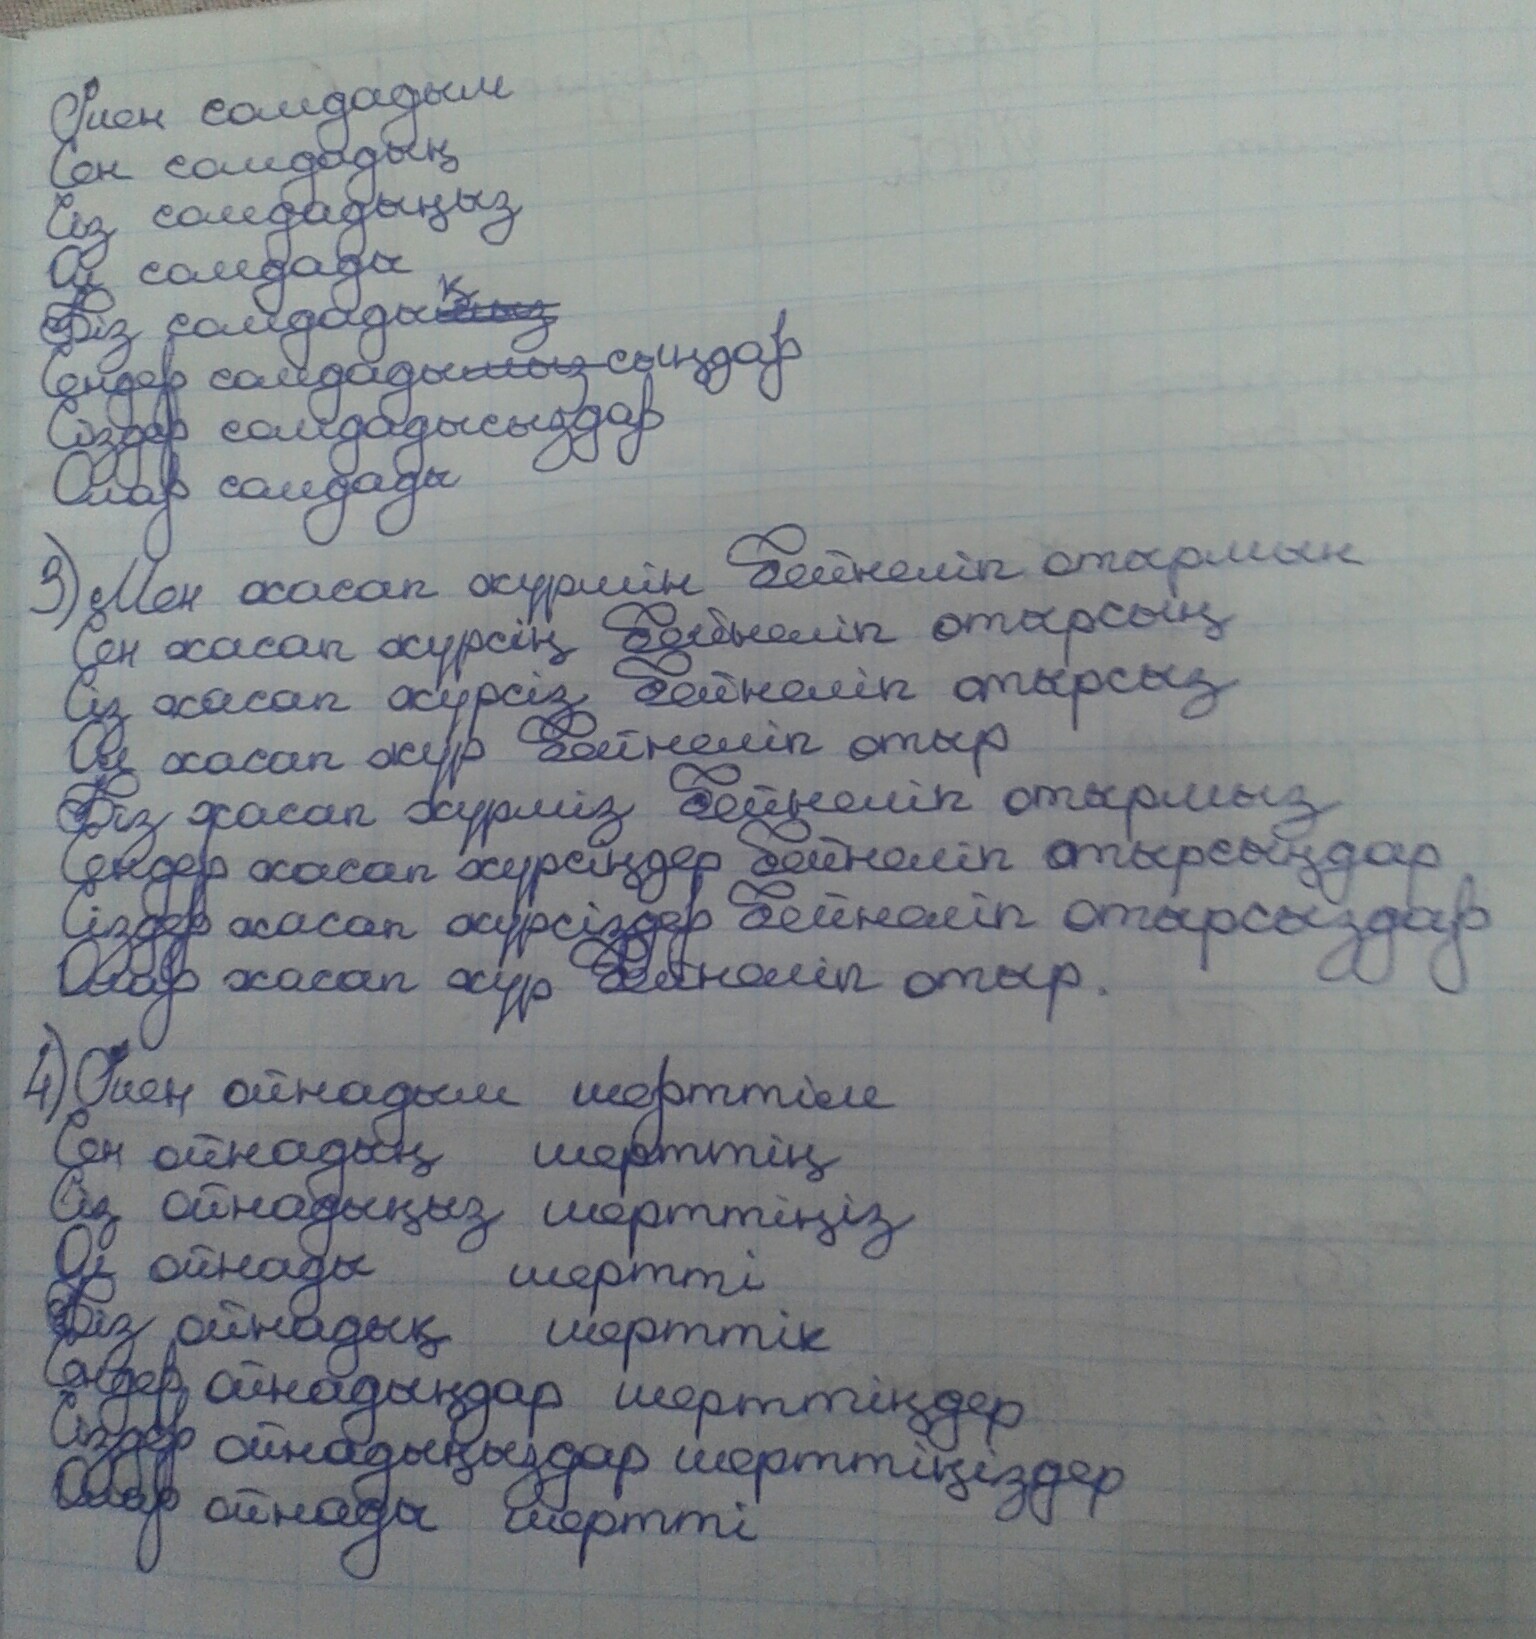 Мен сомдадым
Сен сомдадың
Сіз сомдадыңыз
Ол сомдады
Біз сомдадық
Сендер сомдадысыңдар
Сіздер сомдадысыздар
Олар сомдады
3) Мен жасап жүрмін бейнеліп отырмын
Сен жасап жүрсің бейнеліп отырсың
Сіз жасап жүрсіз бейнеліп отырсыз
Ол жасап жүр бейнеліп отыр
Біз жасап жүрміз бейнеліп отырмыз
Сендер жасап жүрсіңдер бейнеліп отырсыңдар
Сіздер жасап жүрсіздер бейнеліп отырсыздар
Олар жасап жүр бейнеліп отыр.
4) Мен ойнадым шерттім
Сен ойнадың шерттің
Сіз ойнадыңыз шерттіңіз
Ол ойнады шертті
Біз ойнадық шерттік
Сендер ойнадыңдар шерттіңдер
Сіздер ойнадыңыздар шерттіңіздер
Олар ойнады шертті